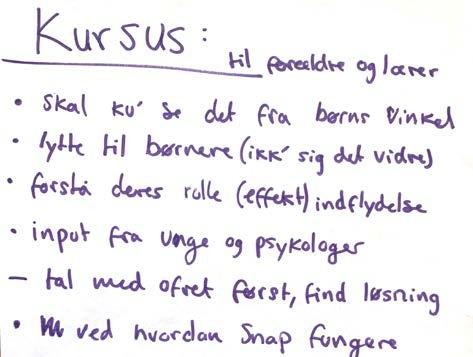 Kursus:
til forældre og lærer
• skal ku' se det fra børns vinkel
• lytte til børnene (ikk' sig det vidre)
• forstå deres rolle (effekt) indflydelse
• input fra unge og psykologer
– tal med ofret først, find løsning
• ved hvordan Snap fungere